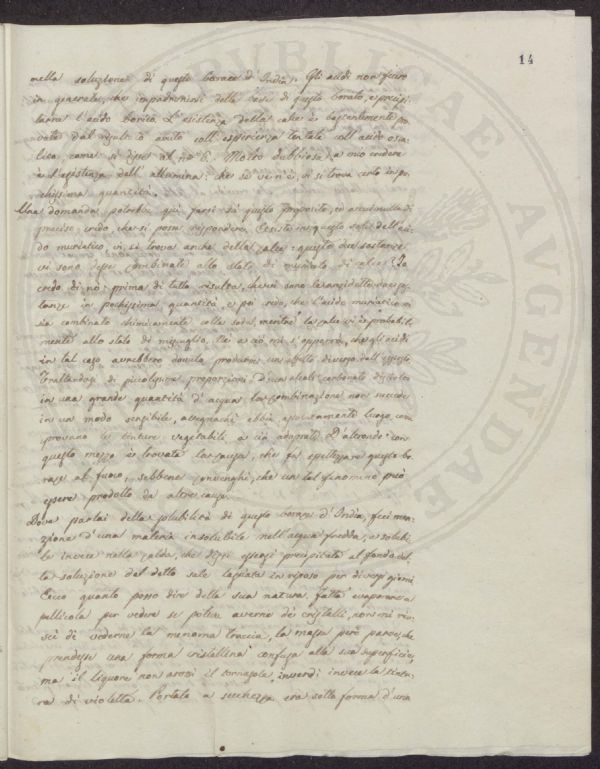 14
nella soluzione di questo borace d'India. Gli acidi non fecero
in generale, che impadronirsi della base di questo borato, e precipi-
tarne l'acido borico. L'esistenza della calce è bastentemente pro-
vata dal risultato avuto coll'esperienza tentata coll'acido ossa-
lico, come si disse al no. 6. Molto dubbiosa a mio credere
è l'esistenza dell'allumina: che se ve n'è, vi si trova certo in po-
chissima quantità.
Una domanda potrebbe quì farsi su questo proposito, ed
credo, che si possa rispondere. Esiste in questo sale dell'aci-
do muriatico, vi si trova anche della calce: queste due sostanze
vi sono desse combinate allo stato di muriato di calce? Io
credo di nò: prima di tutto risulta, che vi sono le sostanze
in pochissima quantità, e poi credo, che l'acido muriatico vi
sia combinato chimicamente colla soda, mentre la calce vi è probabil-
mente allo stato di miscuglio. s'opporrà, che gli acidi
in tal caso avrebbero dovuto produrre un effetto diverso dall'
Trattandosi di piccolissime proporzioni d'un alcali carbonato disciolto
in una grande quantità d'acqua la combinazione non succede
in un modo sensibile, abbia assolutamente luogo, com
provano le tinture vegetabili a ciò adoprate. D'altronde con
questo mezzo è trovata la causa, che fa spettezzare questo bo-
race al fuoco, sebbene convenghi, che un tal fenomeno può
essere prodotto da altre cause.
Dove parlai della solubilità di questo borace d'India, feci men-
zione d'una materia insolubile nell'acqua fredda, e solubi-
le invece nella calda, che dissi essersi precipitata al fondo del-
la soluzione del detto sale lasciata in riposo per diversi giorni
Ecco quanto posso dire della sua natura. fatta evaporare a
pellicola per vedere se poteva averne de' cristalli, non mi riu-
scì di vederne la menoma traccia, la massa però parve, che
prendesse una forma cristallina confusa alla sua superficie,
ma il liquore non arrossì il tornasole, inverdì invece la tintu-
ra di violetta. Portata a secchezza era sotto forma d'una